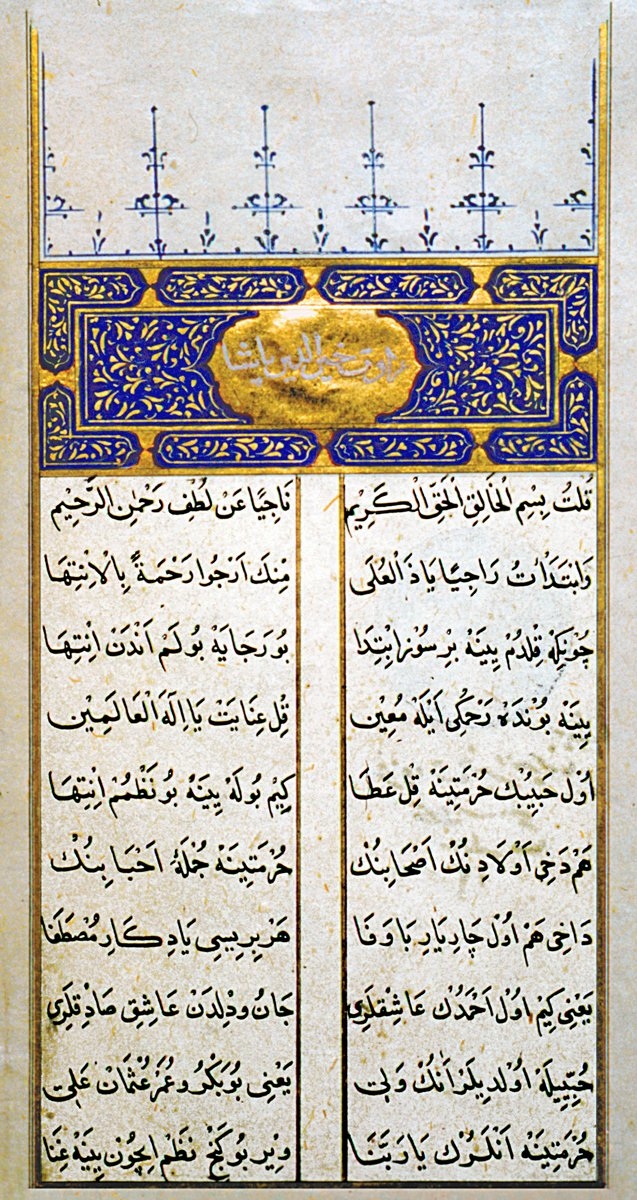 غزوات خير الدين پاشا
قُلتُ بِسْمِ الْخَالِقِ الْحَقِّ الْكَرِيْمِ نَاجِيًا عَنْ لُطْفِ رَحْمٰنِ الرَّحِيْمِ
وَابْتَدَاْتُ رَاجِيًا يَاذَ الْعُلَى مِنْكَ اَرْجُوا رَحْمَةً بِالْاِنْتِهَا
چُونْكِه قِلْدُمْ يِينَه بِرْ سُوزْ ابْتِدَا بُو رَجَايَه بُولَمْ اَنْدَنْ اِنْتِهَا
يِينَه بُونْدَه رَحْمَكِى اَيْلَه مُعِيْن قِلْ عِنَايَتْ يَا اِلٰهَ الْعَالَمِيْن
اُولْ حَبِيْبِكْ حُرْمَتِينَه قِلْ عَطَا كِيمْ بُولَه يِينَه بُو نَظْمُمْ اِنْتِهَا
هَمْ دَخِى اَوْلَادِنُكْ اَصْحَابِنُكْ حُرْمَتِينَه جُمْلَهٔ اَحْبَابِنُكْ
دَاخِى هَمْ اُولْ چَارِ يَارِ بَاوَفَا هَرْ بِرِيسِى يَادِكَارِ مُصْطَفَا
يَعْنِى كِيمْ اُولْ اَحْمَدُكْ عَاشِقْلَرِى جَانُ و دِلْدَنْ عَاشِقِ صَادِقْلَرِى
حُبِّيلَه اُولْدِيلَرْ اَنُكْ وَلِى يَعْنِى بُوبَكْرُ و عُمَرْ عُثْمَانْ عَلِى
حُرْمَتِينَه اَنْلَرُكْ يَا رَبَّنَا وِيرْ بُو كَنْجِ نَظْمْ اِيچُونْ يِينَه غِنَا